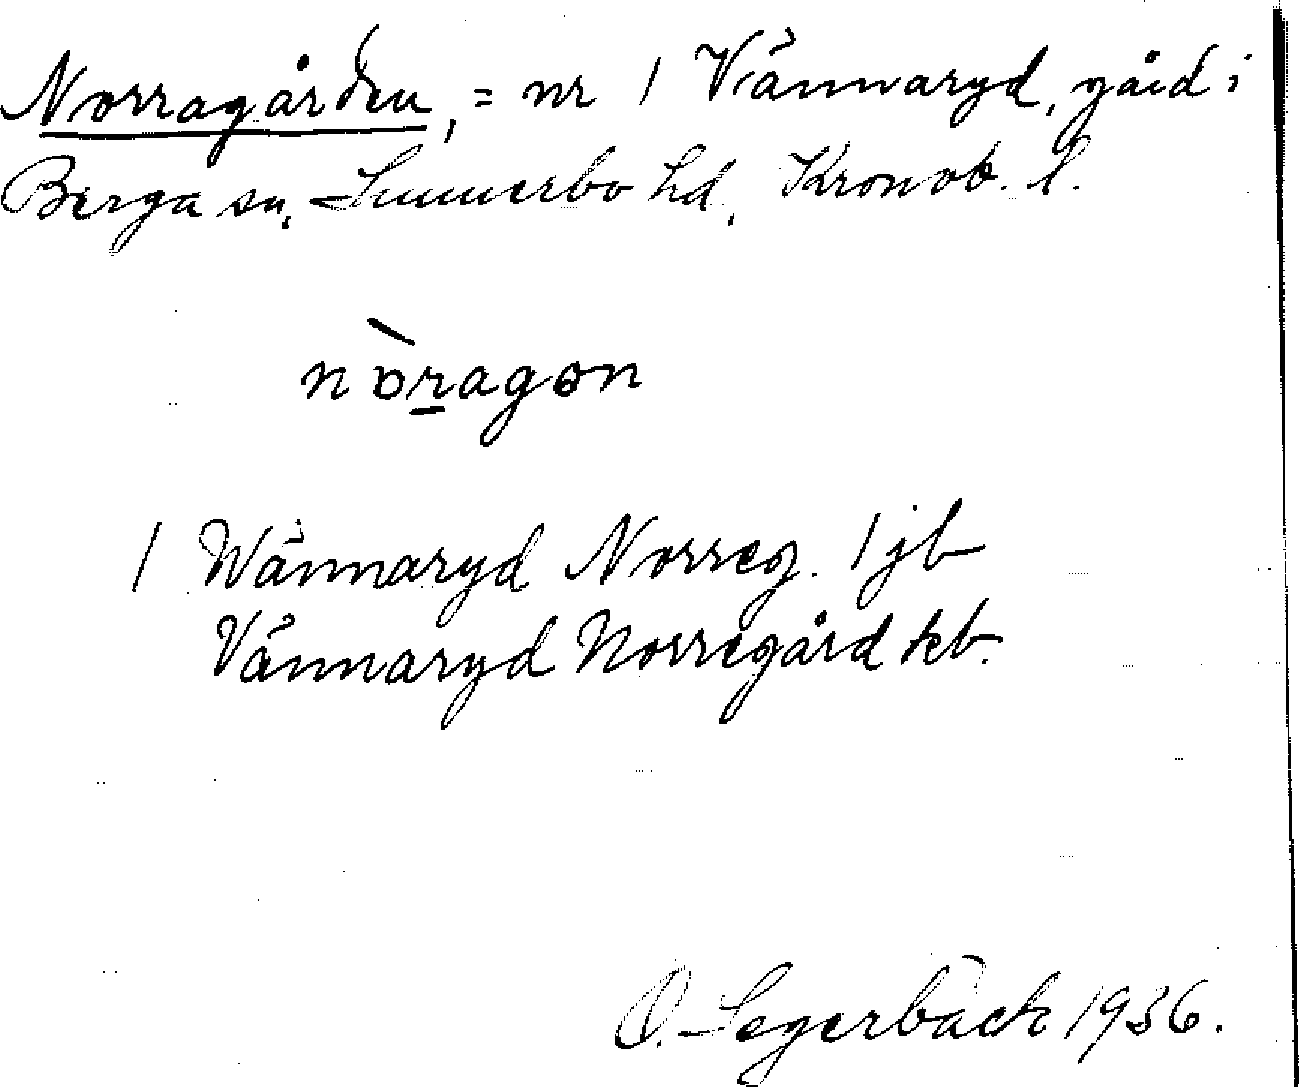 Norragården, = nr 1 Vännaryd, gård i
Berga sn, Sunnerbo hd, Kronob. l.
nòragon
1 Wännaryd Norreg. 1 jb
Vännaryd Norregård kb.
O. Segerbäck 1936.